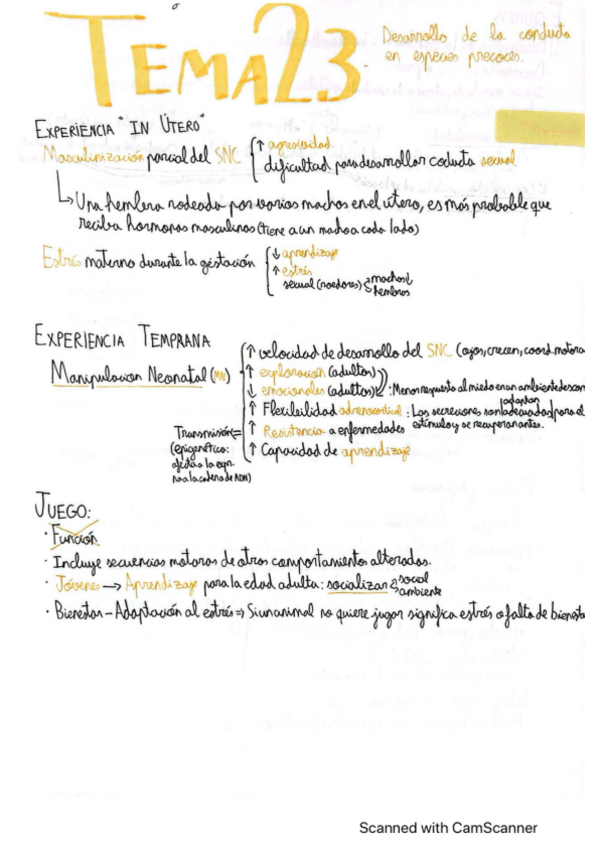 TEMA23.
Desarrollo de la conducta
en especies precoces.
EXPERIENCIA "IN ÚTERO"
Masculinización parcial del SNC
↑ agresividad
dificultad para desarrollar coducta sexual
Una hembra rodeada por varios machos en el útero, es más probable que
reciba hormonas masculinas (tiene a un macho a cada lado)
Estrés materno durante la gestación
↓ aprendizaje
↑ estrés
sexual (roedores) machos
hembras
EXPERIENCIA TEMPRANA
Manipulacion Neonatal (MN)
↑ velocidad de desarrollo del SNC (ojos, crecen, coord. motora
↑ exploración (adultos)
↓ emocionales (adultos) : Menos respuesta al miedo en un ambiente descon
↑ Flexibilidad adrenocortical : Las secreciones son adecuadas para el
adaptan
estímulo y se recuperan antes.
↑ Resistencia a enfermedades
↑ Capacidad de aprendizaje
Transmisión
(epigenético:
afecta a la expr.
no a la cadena de ADN)
JUEGO:
· Función
· Incluye secuencias motoras de otros comportamientos alterados.
· Jóvenes → Aprendizaje para la edad adulta: socializar social
ambiente
· Bienestar - Adaptación al estrés ⇒ Si un animal no quiere jugar significa estrés o falta de bienesta
Scanned with CamScanner